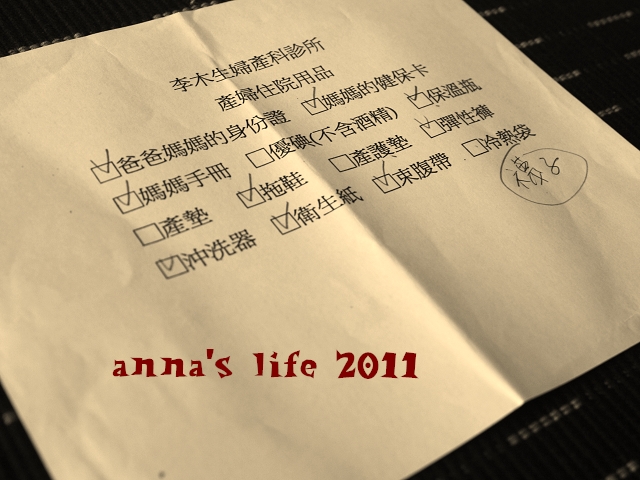 李木生婦產科診所
產婦住院用品
☑爸爸媽媽的身份證 ☑媽媽的健保卡
☑媽媽手冊 □優碘(不含酒精) ☑保溫瓶
□產墊 ☑拖鞋 □產護墊 ☑彈性褲
☑沖洗器 ☑衛生紙 ☑束腹帶 □冷熱袋
anna's life 2011